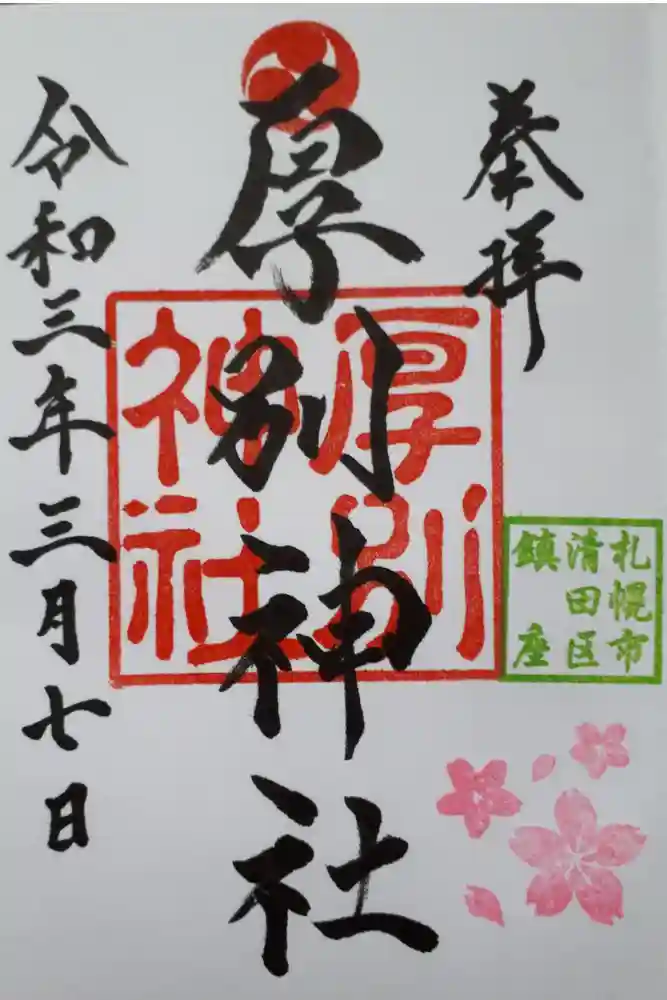 奉拝
厚別神社
厚別
神社
札幌市
清田区
鎮座
令和三年三月七日